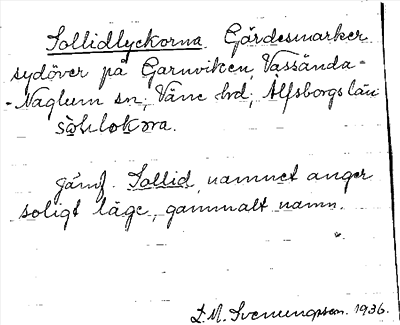 Sollidlyckorna. Gärdesmarker
sydöver på Garnviken, Vassända-
-Naglum sn; Väne hd, Älfsborgs län
Jämf. Sollid, namnet anger
soligt läge, gammalt namn.
L. M. Svenungsson. 1936.